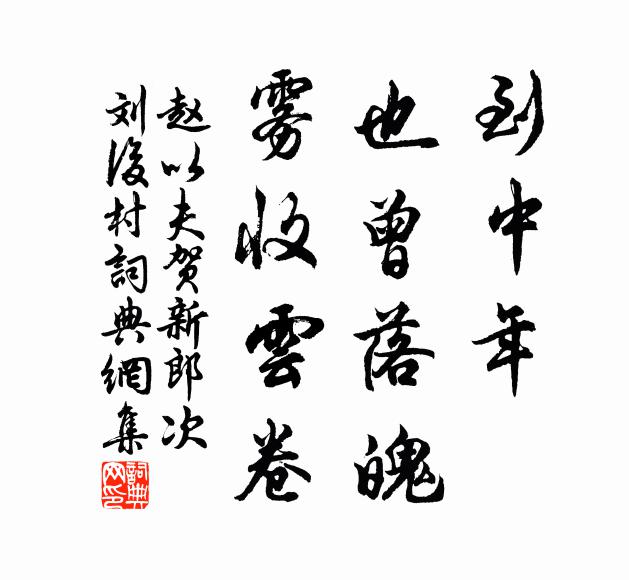 到中年
也曾落魄
雾收雲卷
赵以夫贺新郎次
刘後村詞典網集
詞典网印